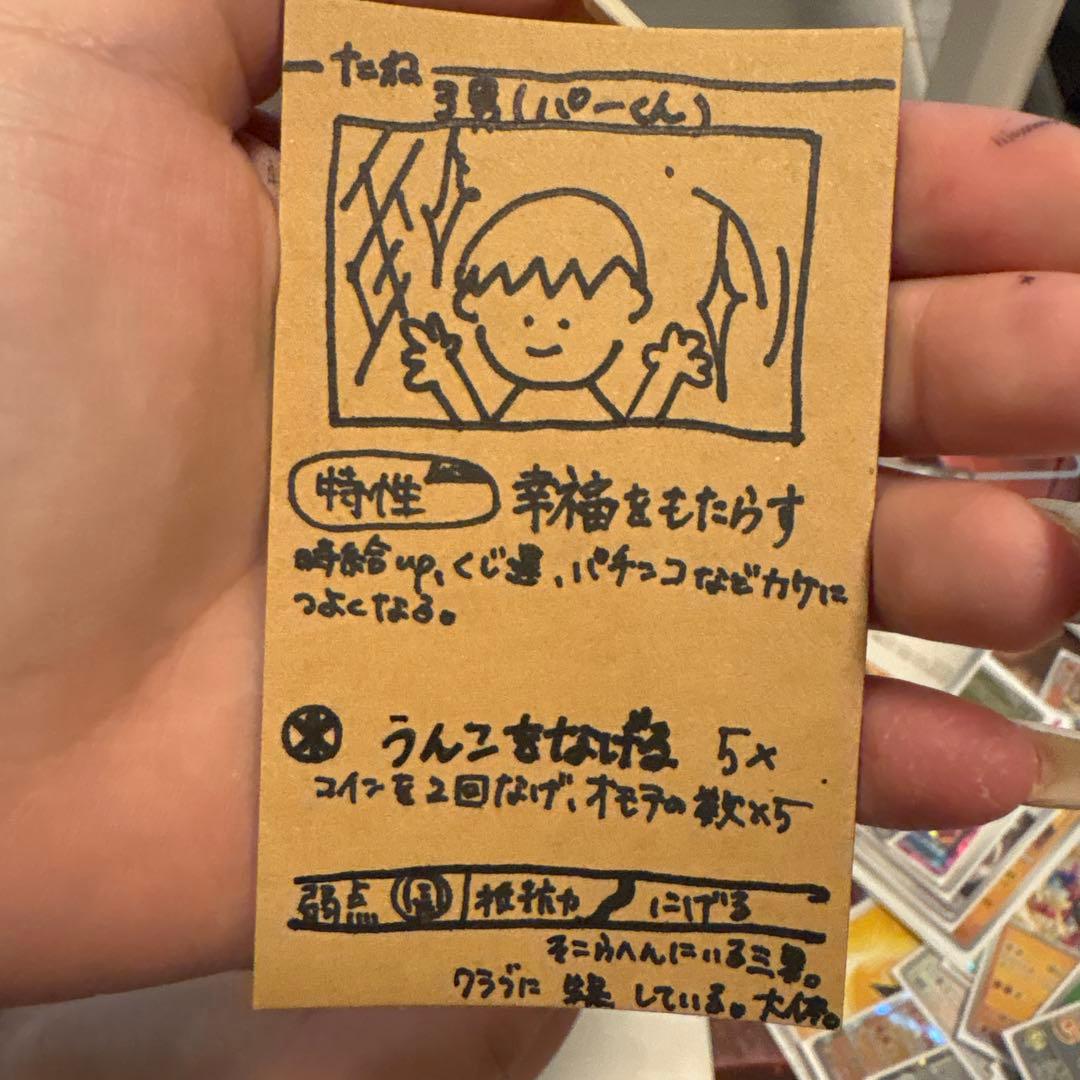 たね
3男(パーくん)
特性 幸福をもたらす
時給up、くじ運、パチンコなどカケに
つよくなる。
うんこをなげる 5×
コインを2回なげ、オモテの数×5
弱点 抵抗力 にげる
そこらへんにいる三男。
クラブに している。大体。